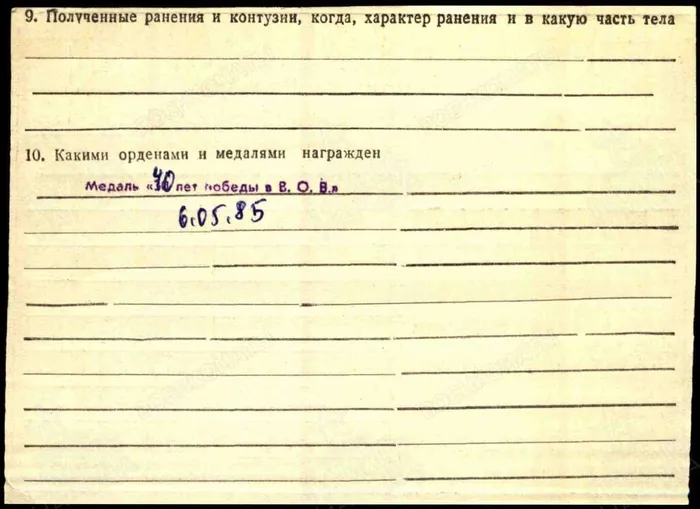 9. Полученные ранения и контузии, когда, характер ранения и в какую часть тела
10. Какими орденами и медалями награжден
Медаль «40 лет победы в В. О. В.»
6.05.85